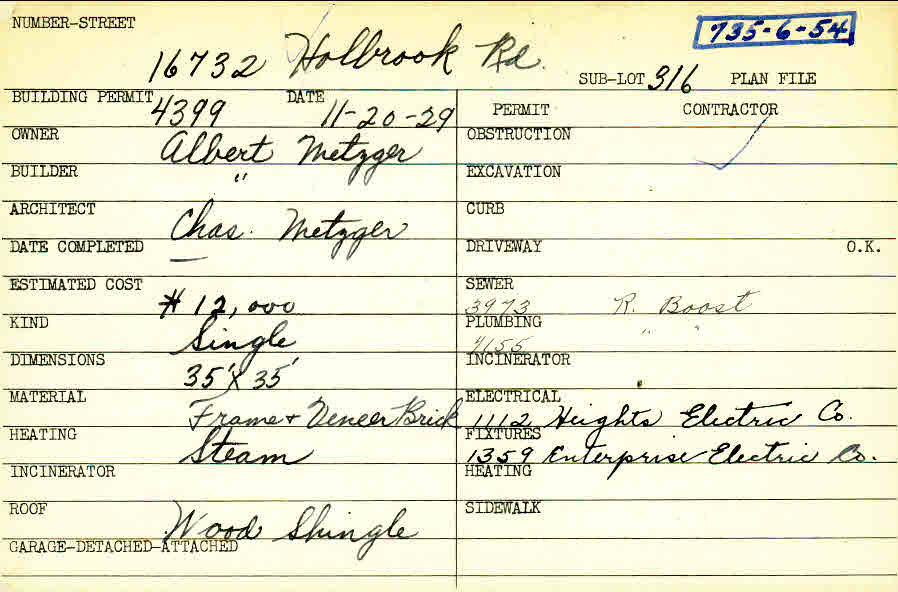 NUMBER-STREET 735-6-54
16732 Holbrook Rd. SUB-LOT 316 PLAN FILE
BUILDING PERMIT 4399 DATE 11-20-29 PERMIT CONTRACTOR
OWNER Albert Metzger OBSTRUCTION
BUILDER " EXCAVATION
ARCHITECT Chas. Metzger CURB
DATE COMPLETED — DRIVEWAY O.K.
ESTIMATED COST $12,000 SEWER 3973 R. Boost
KIND Single PLUMBING 4155 " "
DIMENSIONS 35' X 35' INCINERATOR
MATERIAL Frame + Veneer Brick ELECTRICAL 1112 Heights Electric Co.
HEATING Steam FIXTURES 1359 Enterprise Electric Co.
INCINERATOR HEATING
ROOF Wood Shingle SIDEWALK
GARAGE-DETACHED-ATTACHED